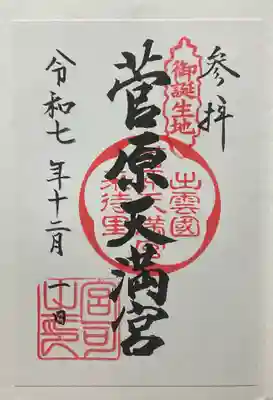 参拝
御誕生地
菅原天満宮
出雲國
菅原天満宮
来待里
令和七年十二月十日
宮司之印